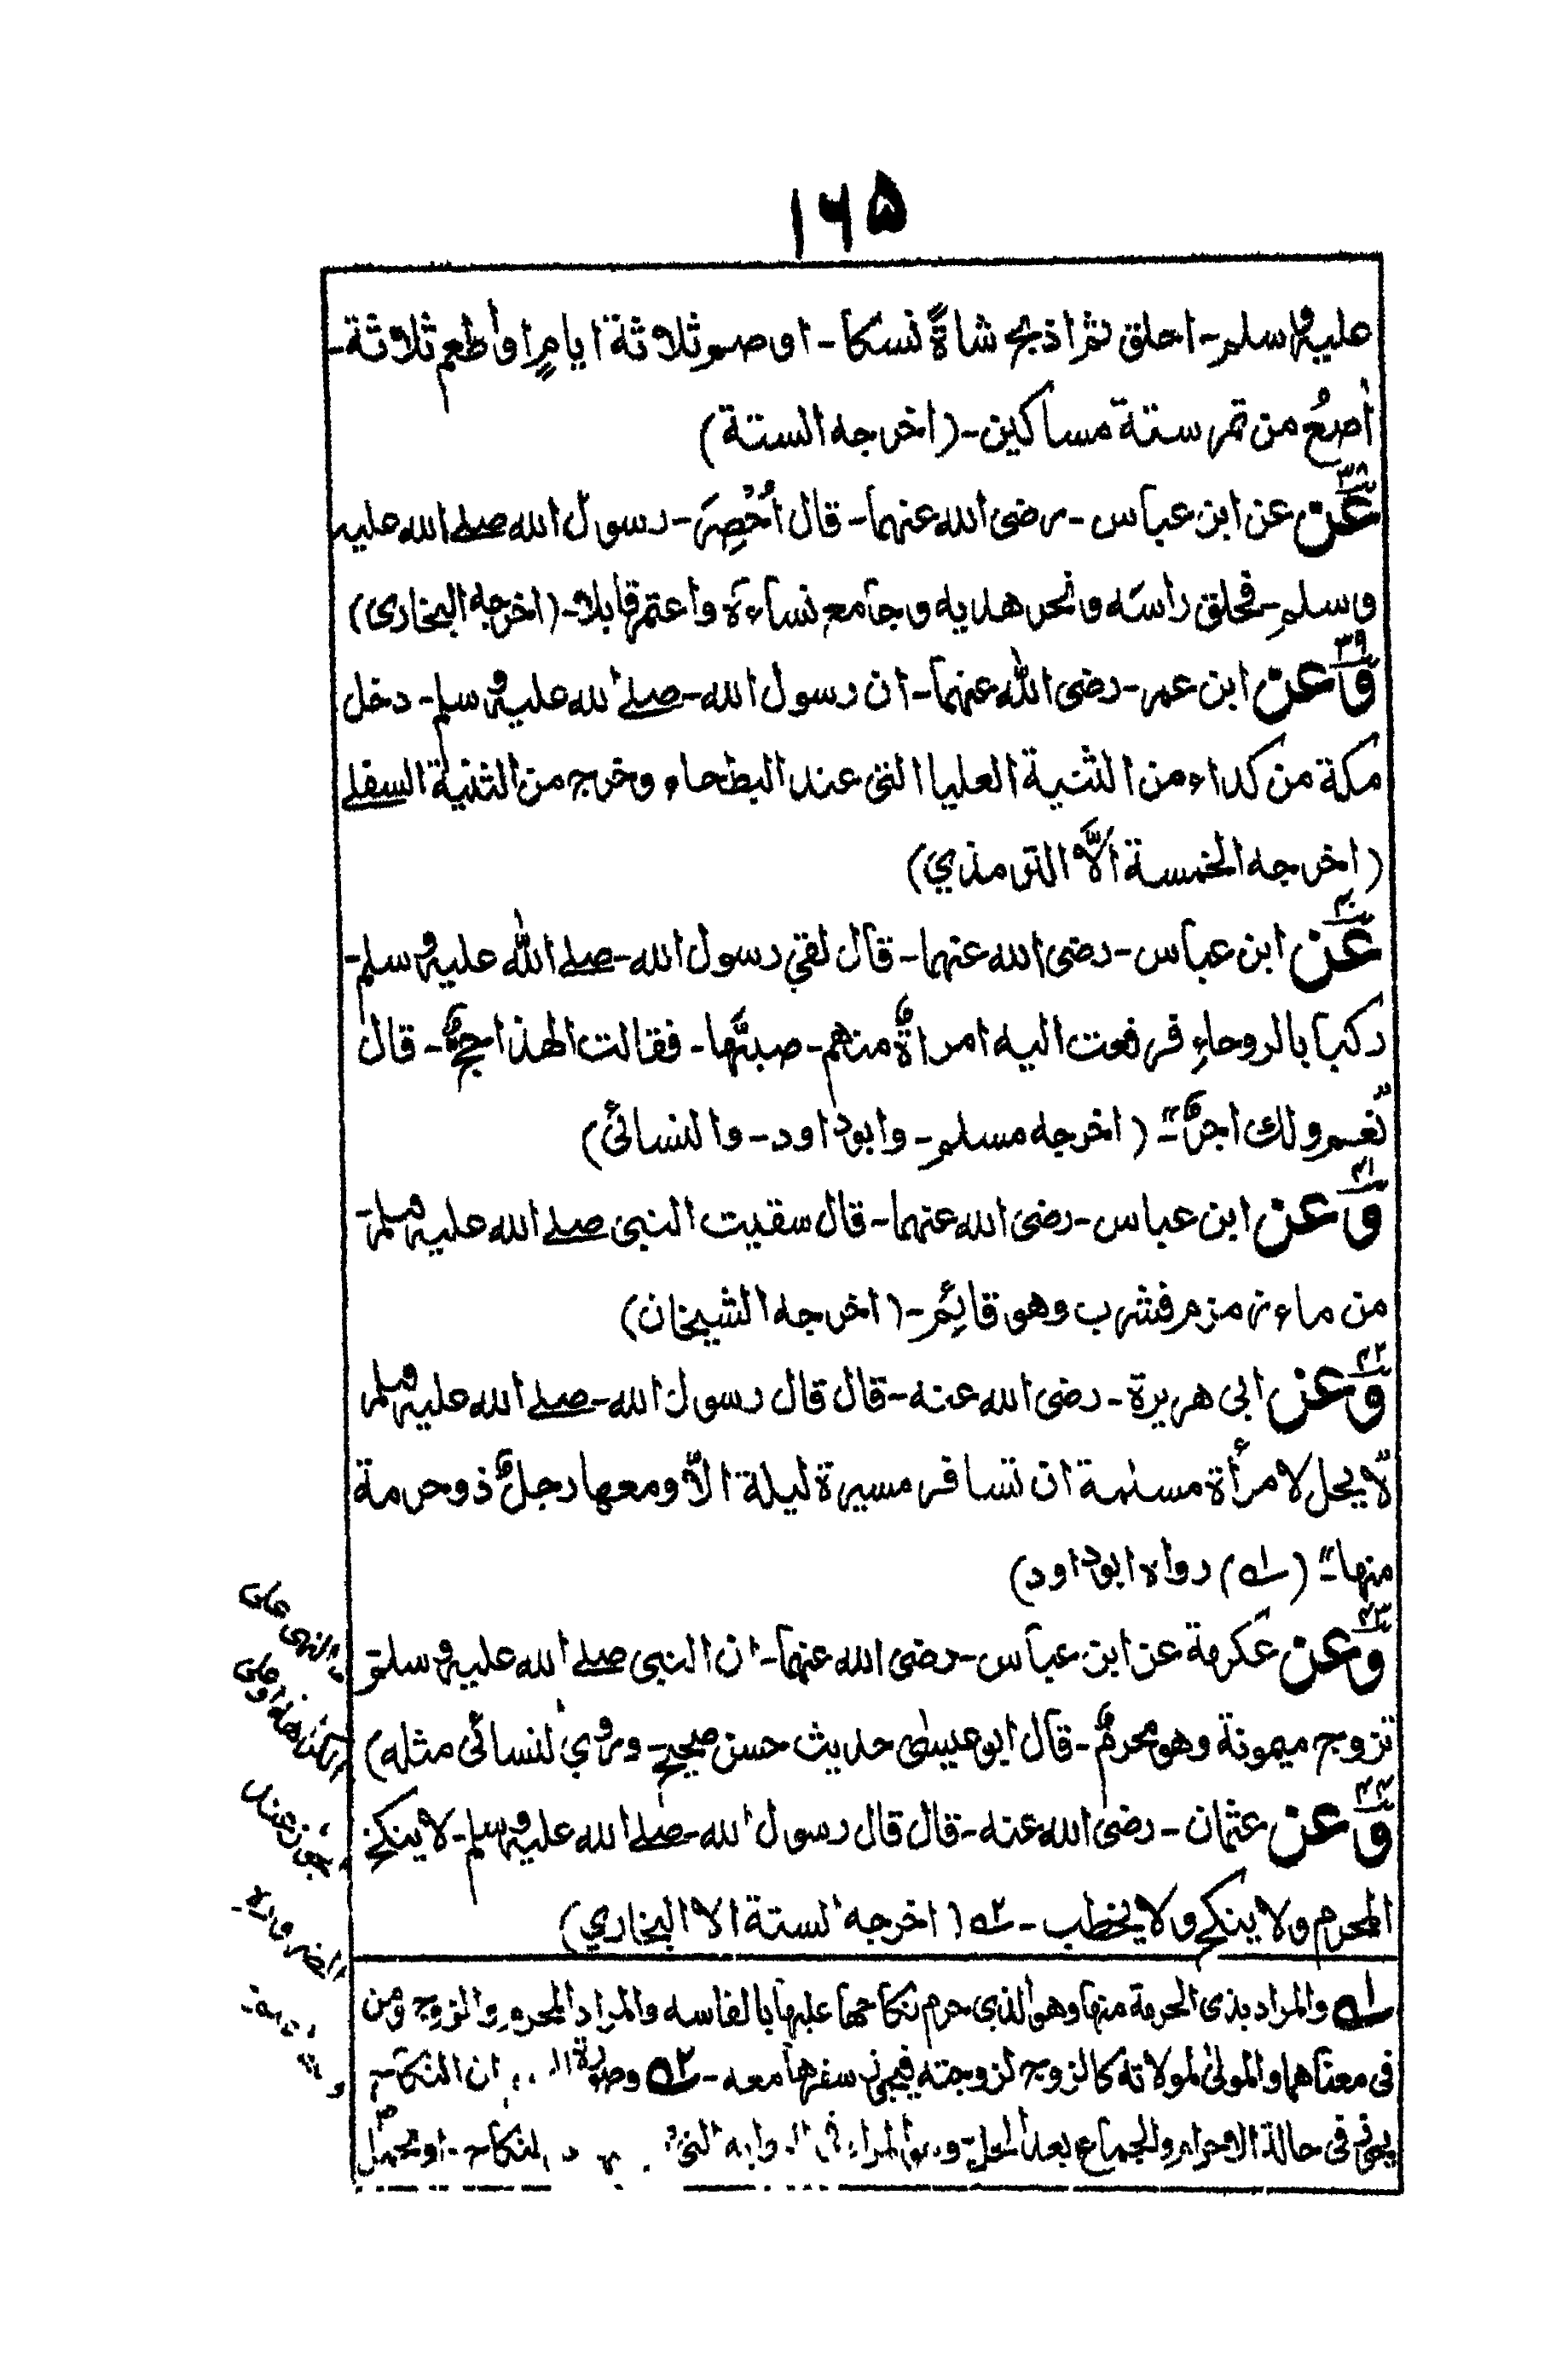 ۱۶۵
عليه وسلم - احلق ثم اذبح شاةً نسكا - او صم ثلاثة ايامٍ او اطعم ثلاثة -
أصعُ من تمر ستة مساكين - (اخرجه الستة)
۳۸ عن عن ابن عباس - رضى الله عنهما - قال اُحْصِرَ - رسول الله صلے الله عليه
وسلم - فحلق راسه ونحر هديه وجامع نساءه واعتمر قابلا - (اخرجه البخارى)
۳۹ وعن ابن عمر - رضى الله عنهما - ان رسول الله - صلے الله عليه وسلم - دخل
مكة من كداء من الثنية العليا التى عند البطحاء وخرج من الثنية السفلے
(اخرجه الخمسة الّا الترمذي)
۴۰ عن ابن عباس - رضى الله عنهما - قال لقي رسول الله - صلے الله عليه وسلم -
ركبا بالروحاءِ فرفعت اليه امراةٌ منهم - صبيًّا لها - فقالت الهذا حجٌّ - قال
نعم ولك اجرٌ" - (اخرجه مسلم - وابو داود - والنسائى)
۴۱ وعن ابن عباس - رضى الله عنهما - قال سقيت النبى صلے الله عليه وسلم -
من ماء زمزم فشرب وهو قائِم - (اخرجه الشيخان)
۴۲ وعن ابى هريرة - رضى الله عنه - قال قال رسول الله - صلے الله عليه وسلم
لا يحل لامرأة مسلمة ان تسافر مسيرة ليلة الّا ومعها رجلٌ ذو حرمة
منها" - (۱ه) رواه ابو داود)
۴۳ وعن عكرمة عن ابن عباس - رضى الله عنهما - ان النبى صلے الله عليه وسلم
تزوج ميمونة وهو محرمٌ - قال ابو عيسىٰ حديث حسن صحيح - وروي النسائى مثله)
۴۴ وعن عثمان - رضى الله عنه - قال قال رسول الله - صلے الله عليه وسلم - لا ينكح
المحرم ولا ينكح ولا يخطب - ۲ه (اخرجه الستة الا البخاري)
۱ه والمراد بذى الحرمة منها وهو الذي حرم نكاحها عليها بالقاسه والمراد المحرم والزوج ومن
فى معناهما والمولىٰ لمولاته كالزوج لزوجته فيجوز سفرها معه - ۲ه ان النكاح
يجوز فى حالة الاحرام والجماع بعد الحل النكاح - او يحمل
النهى على